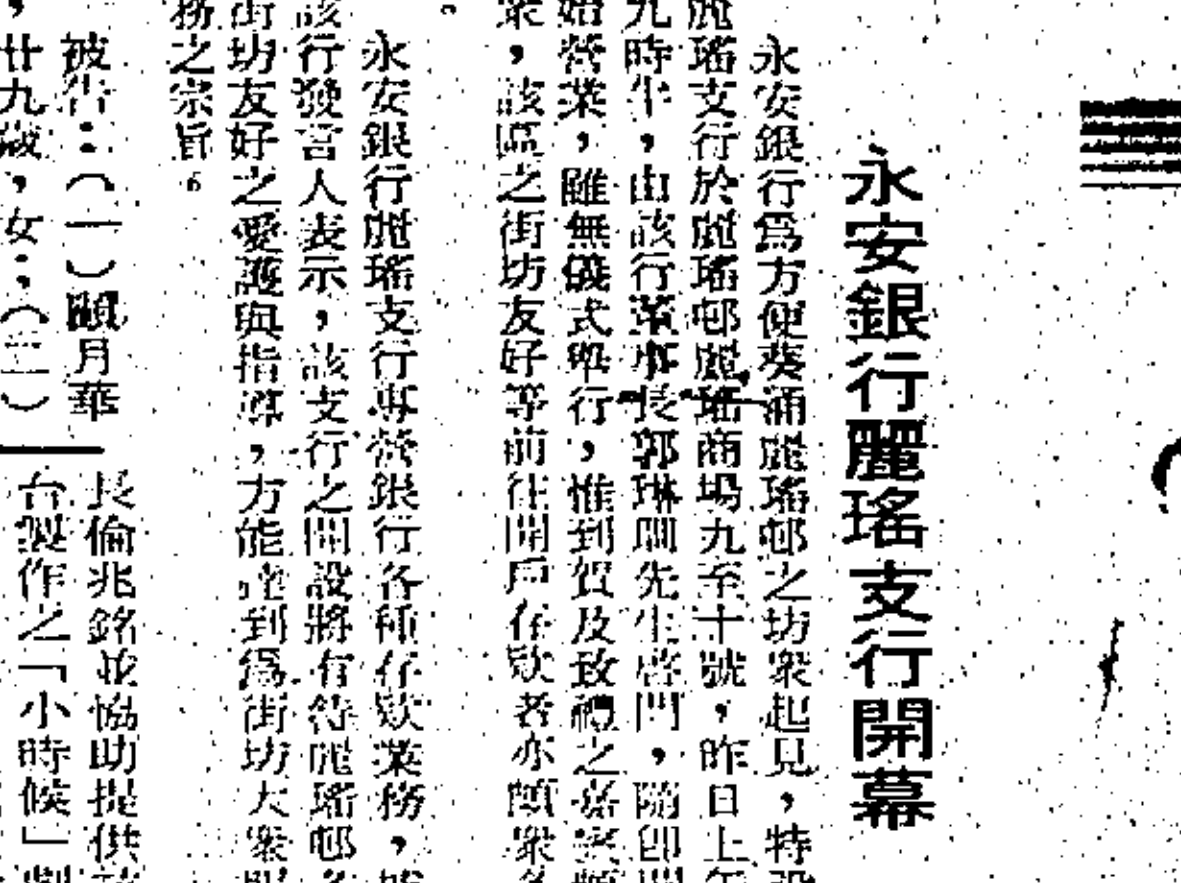 永安銀行麗瑤支行開幕
永安銀行爲方便葵涌麗瑤邨之坊衆起見，特設
麗瑤支行於麗瑤邨麗瑤商場九至十號，昨日上午
九時半，由該行董事長郭琳間先生啓門，隨卽開
始營業，雖無儀式舉行，惟到賀及致禮之嘉賓頗
衆，該區之街坊友好等前往開戶存欵者亦頗衆多
。
永安銀行麗瑤支行專營銀行各種存欵業務，據
該行發言人表示，該支行之開設將有待麗瑤邨各
街坊友好之愛護與指導，方能達到爲街坊大衆服
務之宗旨。
被告：（一）顧月華
，廿九歲，女；（二）
長倫兆銘並協助提供該
台製作之「小時候」劇